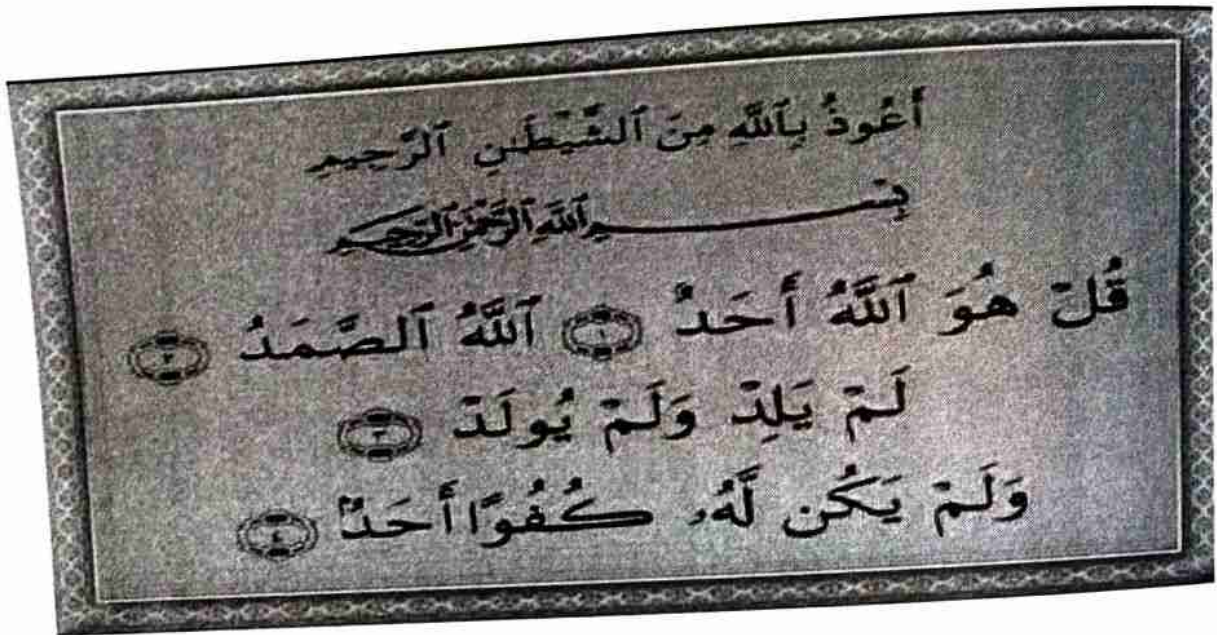 أَعُوذُ بِٱللَّهِ مِنَ ٱلشَّيْطَٰنِ ٱلرَّحِيمِ
بِسْمِ ٱللَّهِ ٱلرَّحْمَٰنِ ٱلرَّحِيمِ
قُلْ هُوَ ٱللَّهُ أَحَدٌ ١ ٱللَّهُ ٱلصَّمَدُ ٢
لَمْ يَلِدْ وَلَمْ يُولَدْ ٣
وَلَمْ يَكُن لَّهُۥ كُفُوًا أَحَدٌۢ ٤